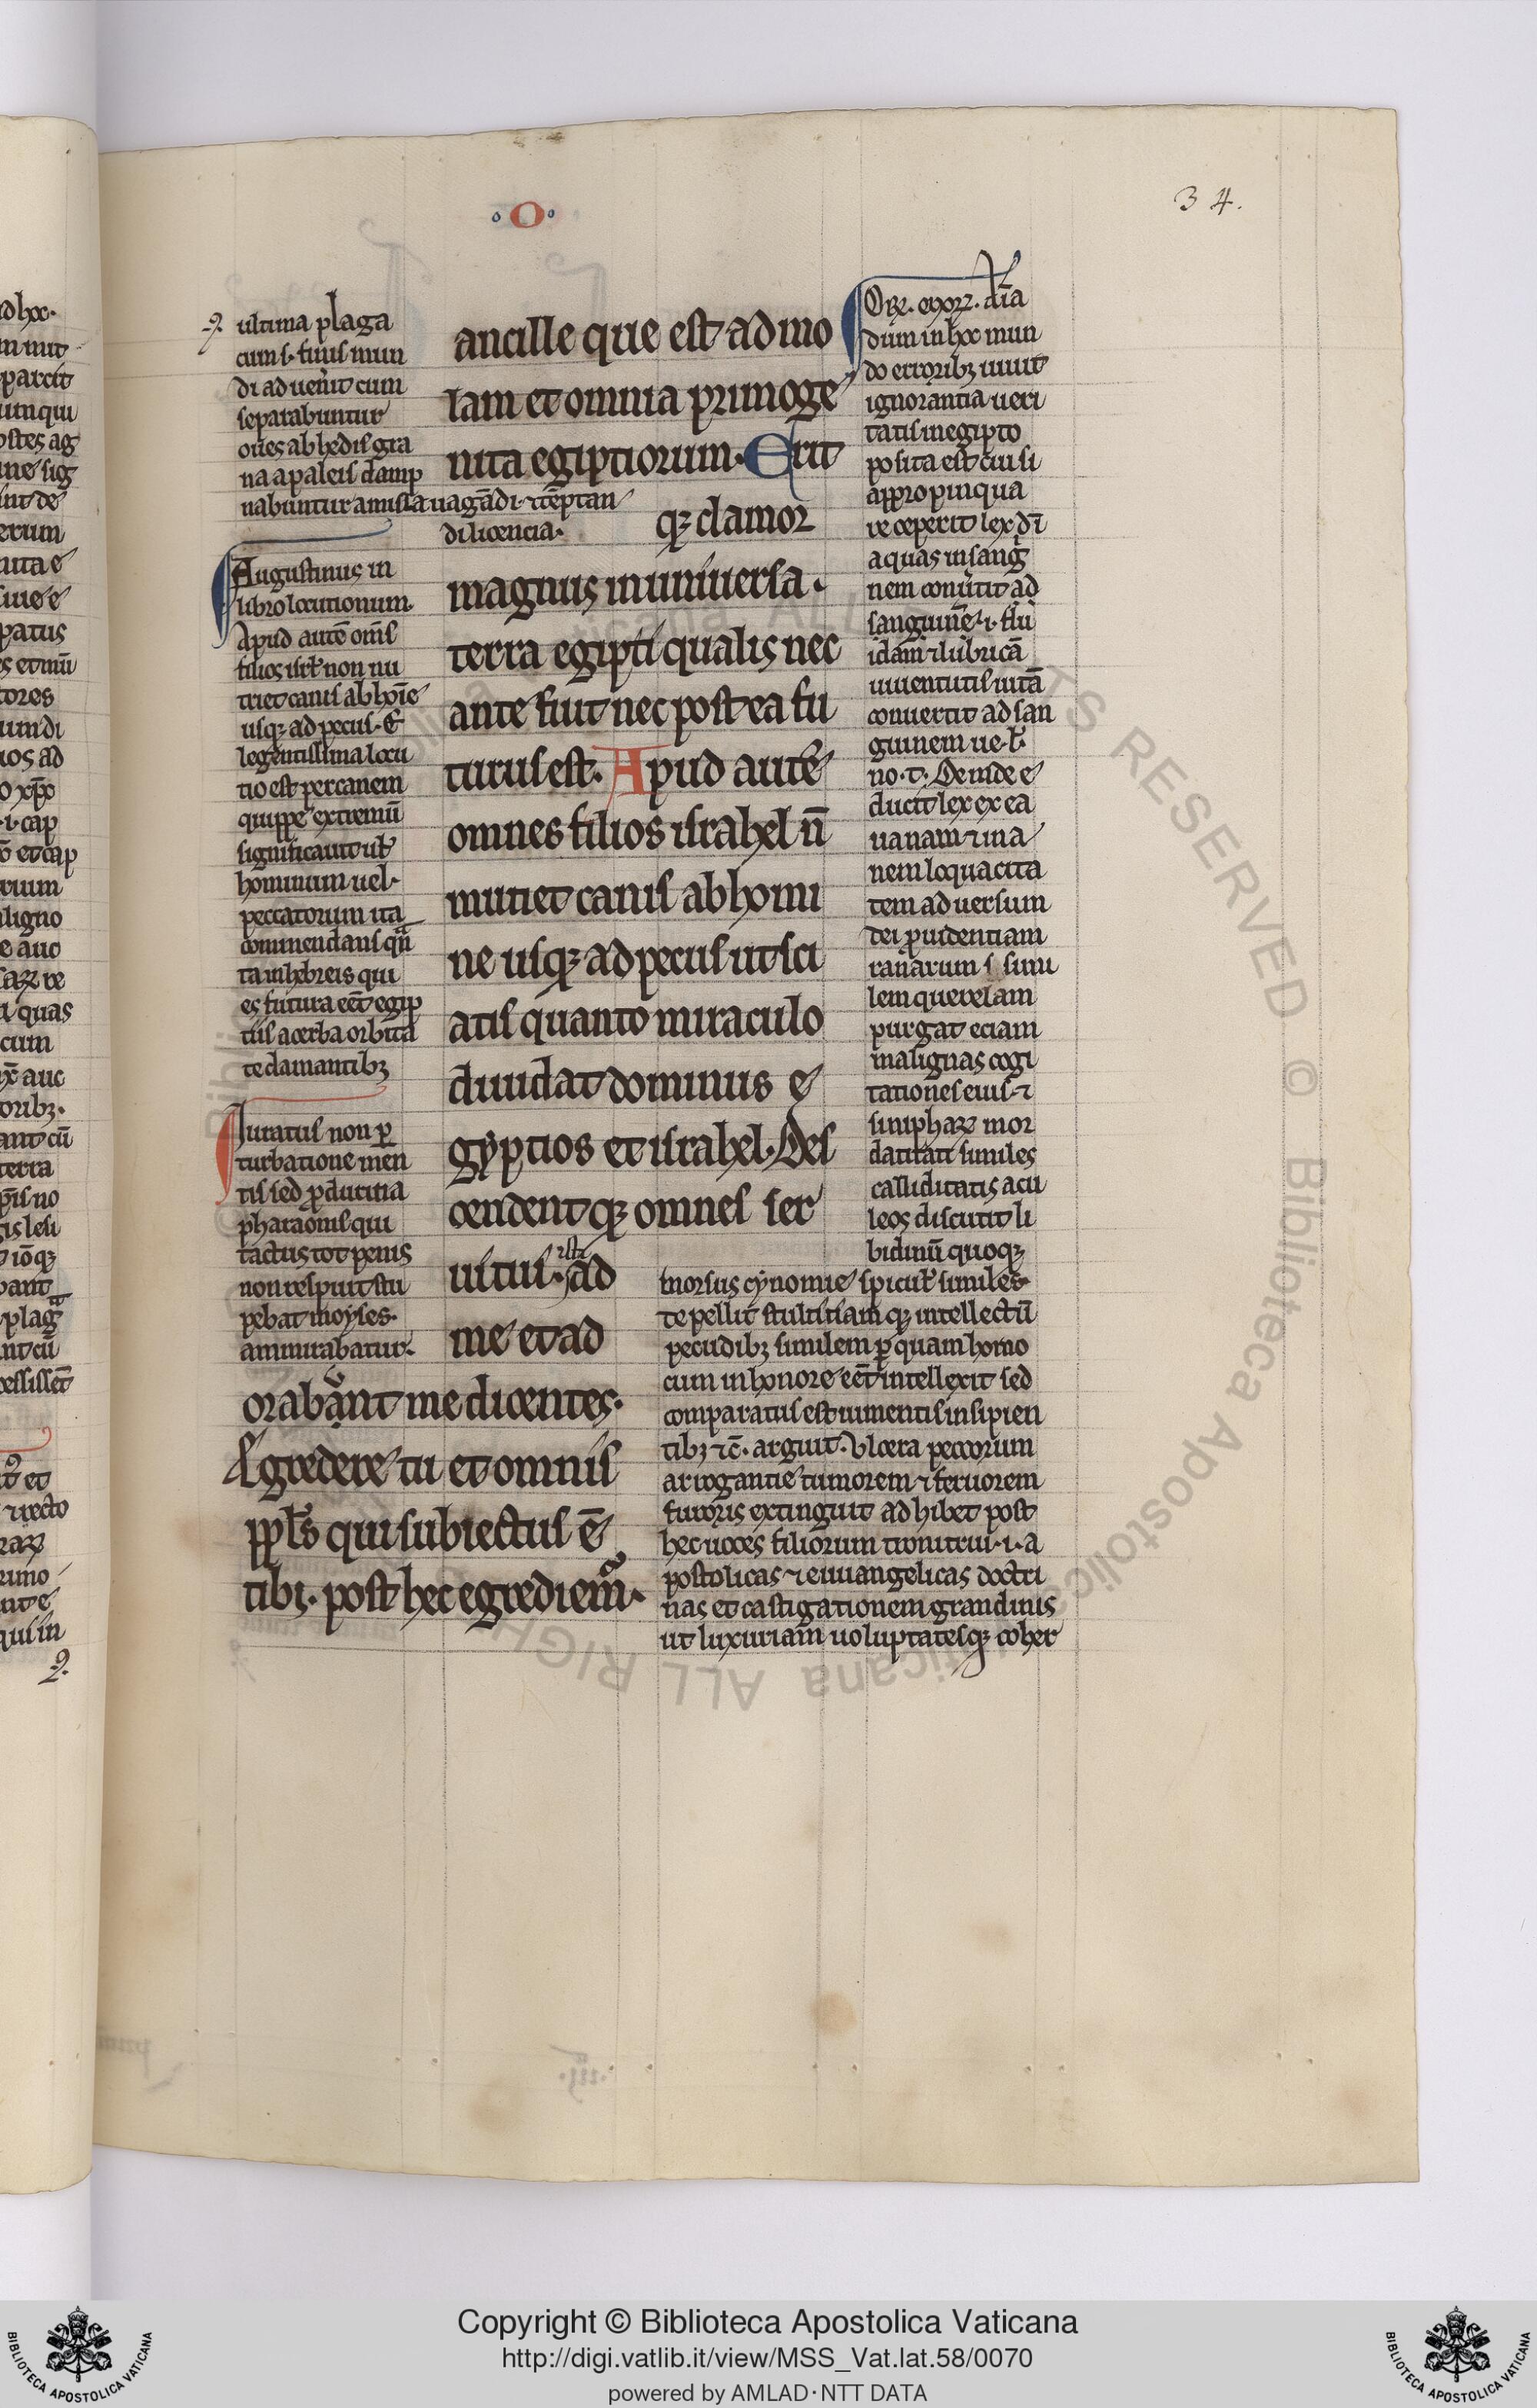 34.
o
ultima plaga
cum .s. finis mun
di aduenit cum
separabuntur
oues ab hedis gra
na a paleis damp
nabuntur amissa uagādi ⁊ tēptan
di licencia.
Augustinus in
libro locutionum
Apud autē om̄s
filios isrł non nu
triet canis ab hoīe
usqꝫ ad pecus. E
legentissima locu
tio est per canem
quippe extremū
significauit uł
hominum uel.
peccatorum ita
commendans
ta in hebreis qui
es futura eēt egip
tiis acerba orbita
te clamantibꝫ
Iratus non ꝑ
turbatione men
tis sed ꝓ duritia
pharaonis qui
tactus tot penis
non respuit stu
pebat moyses.
amirabatur.
ancille que est ad mo
lam et omnia primoge
nita egiptiorum. Erit
qꝫ clamor
magnus in uniuersa.
terra egipti qualis nec
ante fuit nec post ea fu
turus est. Apud autē
omnes filios israhel n̄
mutiet canis ab homi
ne usqꝫ ad pecus ut sci
atis quanto miraculo
diuidat dominus e
gyptios et israhel. Des
cendent qꝫ omnes ser
ui tui. isti ad
me et ad
orabunt me dicentes.
Egredere tu et omnis
ppłs qui subiectus ē
tibi. post hec egrediem̃.
dum in hoc mun
do erroribꝫ uiuit
ignorantia ueri
tatis in egipto
posita est cui si
appropinqua
re ceperit lex dī
aquas in sang
nem conuertit ad
sanguinē .i. flu
idam ⁊ lubricā
iuuentutis uitā
conuertit ad san
guinem ue. ł.
no. t. Deinde e
ducit lex ex ea
uanam ⁊ ina
nem loquacita
tem aduersum
dei ꝓuidentiam
ranarum s simi
lem querelam
purgat eciam
malignas cogi
tationes eius ⁊
siniphaꝝ mor
dacitati similes
calliditatis acu
leos discutit li
bidinū quoqꝫ
morsus cynomie spicuł similes
depellit stultitiam qꝫ intellectū
pecudibꝫ similem ꝑ quam homo
cum in honore eēt intellexit sed
comparatus est iumentis insipien
tibꝫ ⁊c̄. arguit. Vlcera peccorum
arrogantie tumorem ⁊ feruorem
furoris extinguit adhibet post
hec uoces filiorum tonitrui .i. a
postolicas ⁊ euuangelicas doctri
nas et castigationem grandinis
ut luxuriam uoluptatesqꝫ coher
Copyright © Biblioteca Apostolica Vaticana
http://digi.vatlib.it/view/MSS_Vat.lat.58/0070
powered by AMLAD·NTT DATA